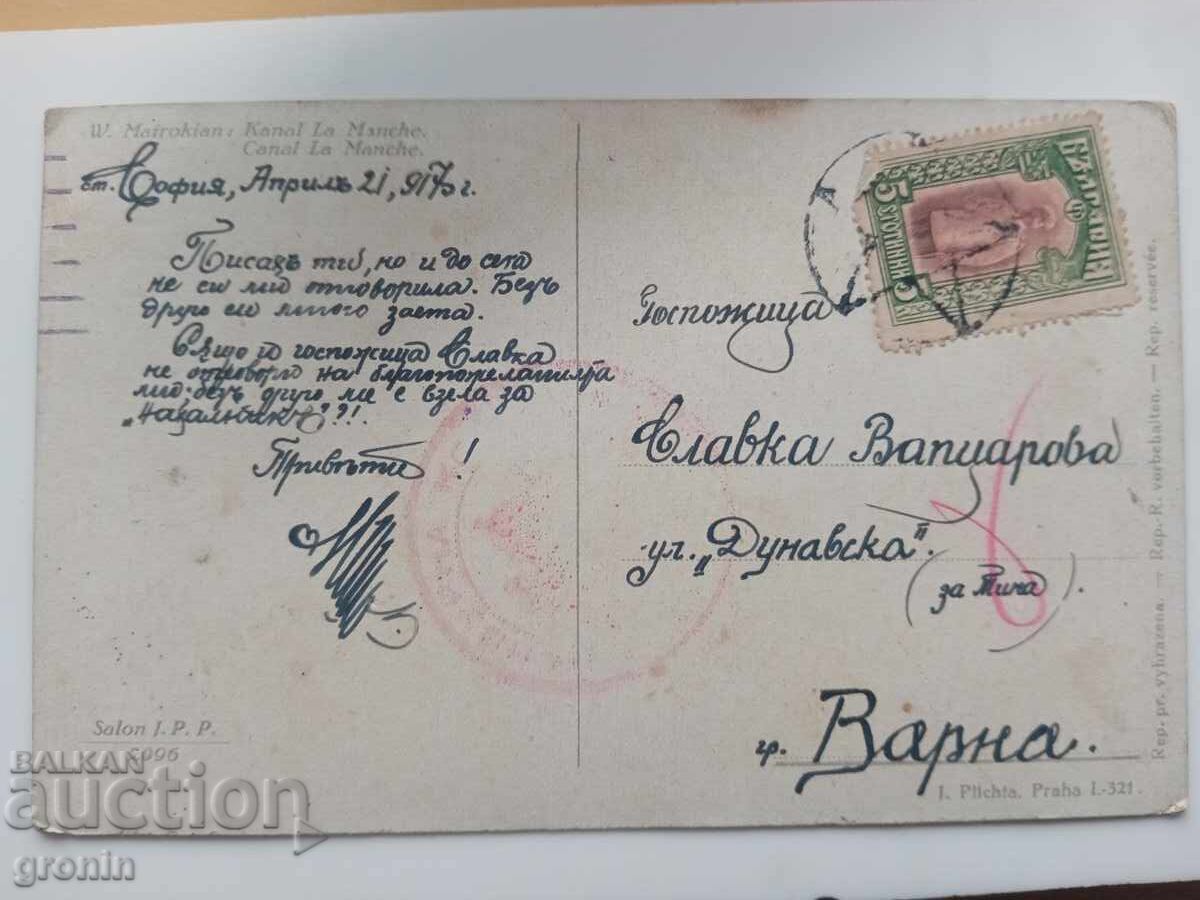 W. Mairokian: Kanal La Manche.
Canal La Manche.
ст. София, Априлъ 21, 917 г.
Писахъ ти, но и до сега
не си ми отговорила. Безъ
друго си много заета.
Също и госпожица Славка
не отговори на благопожеланията
ми; безъ друго ме е взела за
„нахалникъ"?!!
Привѣти !
Salon J. P. P.
5996
БЪЛГАРИЯ
5 СТОТИНКИ 5
Госпожица
Славка Вапцарова
ул. „Дунавска".
(за Мича).
гр. Варна.
J. Plichta, Praha I.-321.
Rep. pr. vyhrazena. — Rep.-R. vorbehalten. — Rep. reservée.
BALKAN
auction
gronin